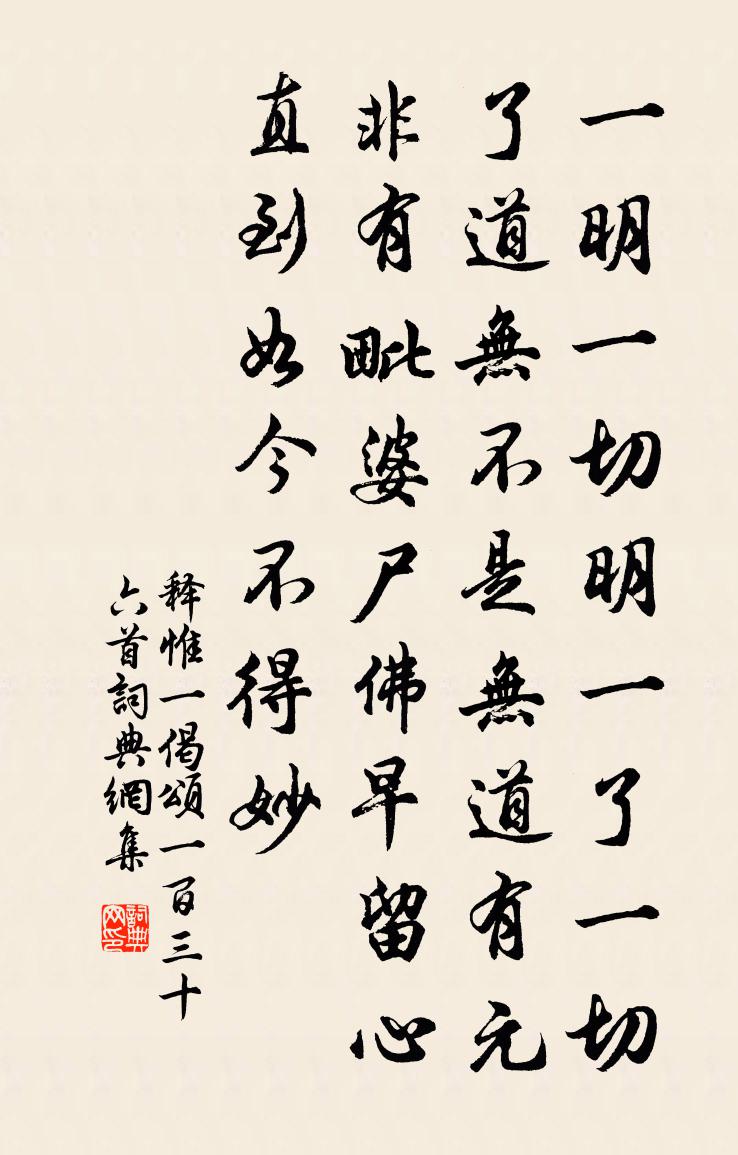 一明一切明一了一切
了道無不是無道有元
非有毗婆尸佛早留心
直到如今不得妙
释惟一偈頌一百三十
六首詞典網集
詞典网印